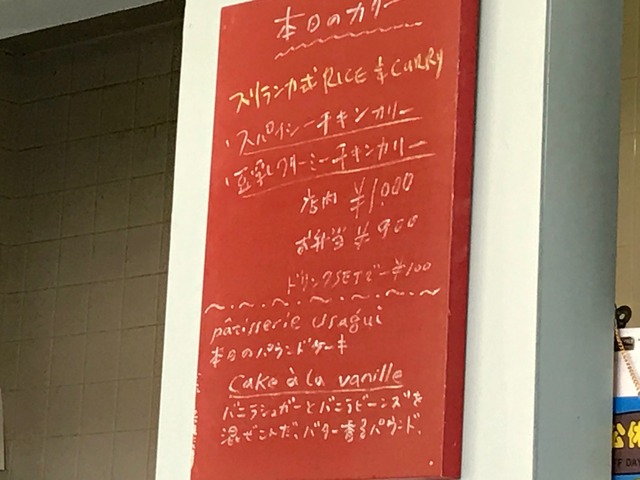 本日のカリー
スリランカ式 RICE & CURRY
・スパイシーチキンカリー
・豆乳クリーミーチキンカリー
店内 ¥1,000
お弁当 ¥900
ドリンクSETで-¥100
pâtisserie usagui
本日のパウンドケーキ
Cake à la vanille
バニラシュガーとバニラビーンズを
混ぜこんだ、バター香るパウンド、